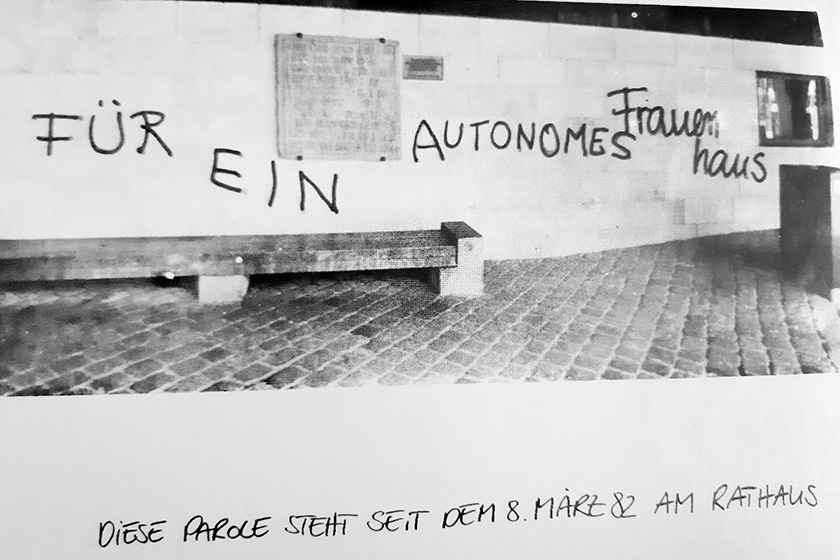 FÜR EIN AUTONOMES Frauen
haus
DIESE PAROLE STEHT SEIT DEM 8. MÄRZ 82 AM RATHAUS